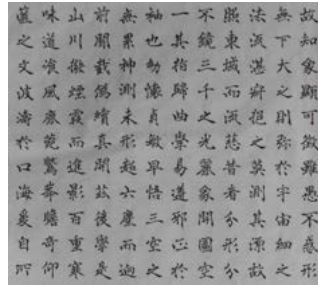 故知象顯可徵雖愚不惑形
無下大之則彌於宇宙細之
法流湛寂挹之莫測其源故
照東城而流慈昔者分形分
不鏡三千之光麗象開圖空
一其指歸曲學易遵邪正於
袖也幼懷貞敏早悟三空之
無累神測未形超六塵而迥
前聞截偽續真開茲後學是
山川撥煙霞而進影百重寒
味道飡風鹿菀鷲峯瞻奇仰
蘊之文波濤於口海爰自所